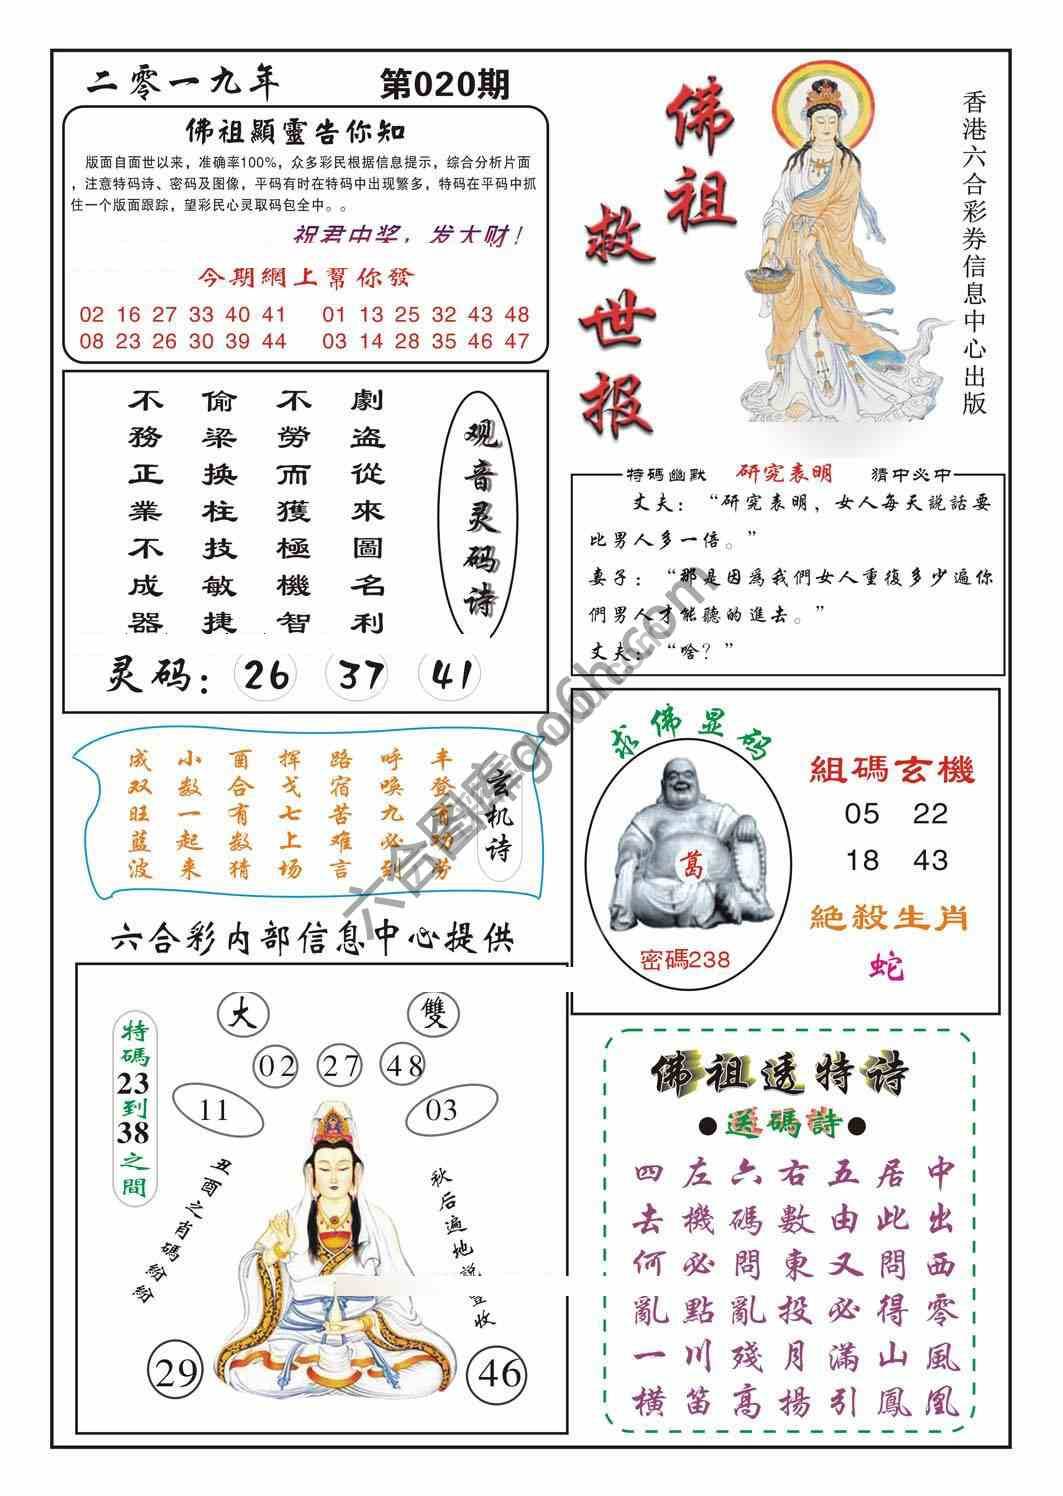 二零一九年
第020期
佛祖顯靈告你知
版面自面世以来，准确率100%，众多彩民根据信息提示，综合分析片面
，注意特码诗、密码及图像，平码有时在特码中出现繁多，特码在平码中抓
住一个版面跟踪，望彩民心灵取码包全中。。
祝君中奖，发大财！
今期網上幫你發
02 16 27 33 40 41 01 13 25 32 43 48
08 23 26 30 39 44 03 14 28 35 46 47
佛祖救世报
香港六合彩券信息中心出版
观音灵码诗
劇盗從來圖名利
不勞而獲極機智
偷梁换柱技敏捷
不務正業不成器
灵码：26 37 41
特碼幽默 研究表明 猜中必中
丈夫：“研究表明，女人每天説話要
比男人多一倍。”
妻子：“那是因爲我們女人重復多少遍你
們男人才能聽的進去。”
丈夫：“啥？”
玄机诗
丰登有功劳
呼唤九必到
路宿苦难言
挥戈七上场
酉合有数猜
小数一起来
成双旺蓝波
六合彩内部信息中心提供
求佛显码
萬
密碼238
組碼玄機
05 22
18 43
絶殺生肖
蛇
大 雙
02 27 48
11 03
特碼23到38之間
丑酉之肖碼紛紛
秋后遍地説豐收
29 46
佛祖透特诗
●送碼詩●
中出西零風凰
居此問得山鳳
五由又必滿引
右數東投月揚
六碼問亂殘高
左機必點川笛
四去何亂一橫
六合图库go6h.com